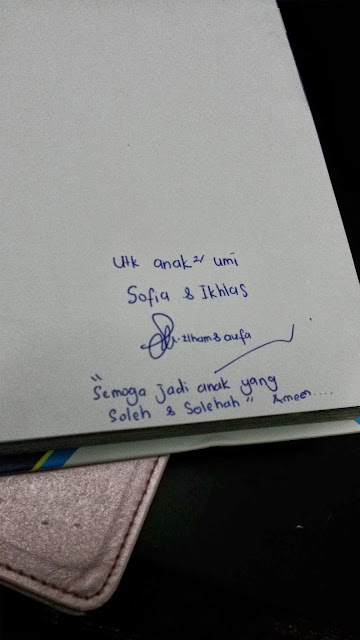 Utk anak2 umi
Sofia & Ikhlas
ilham & aufa
"Semoga jadi anak yang
Soleh & Solehah" Ameen....